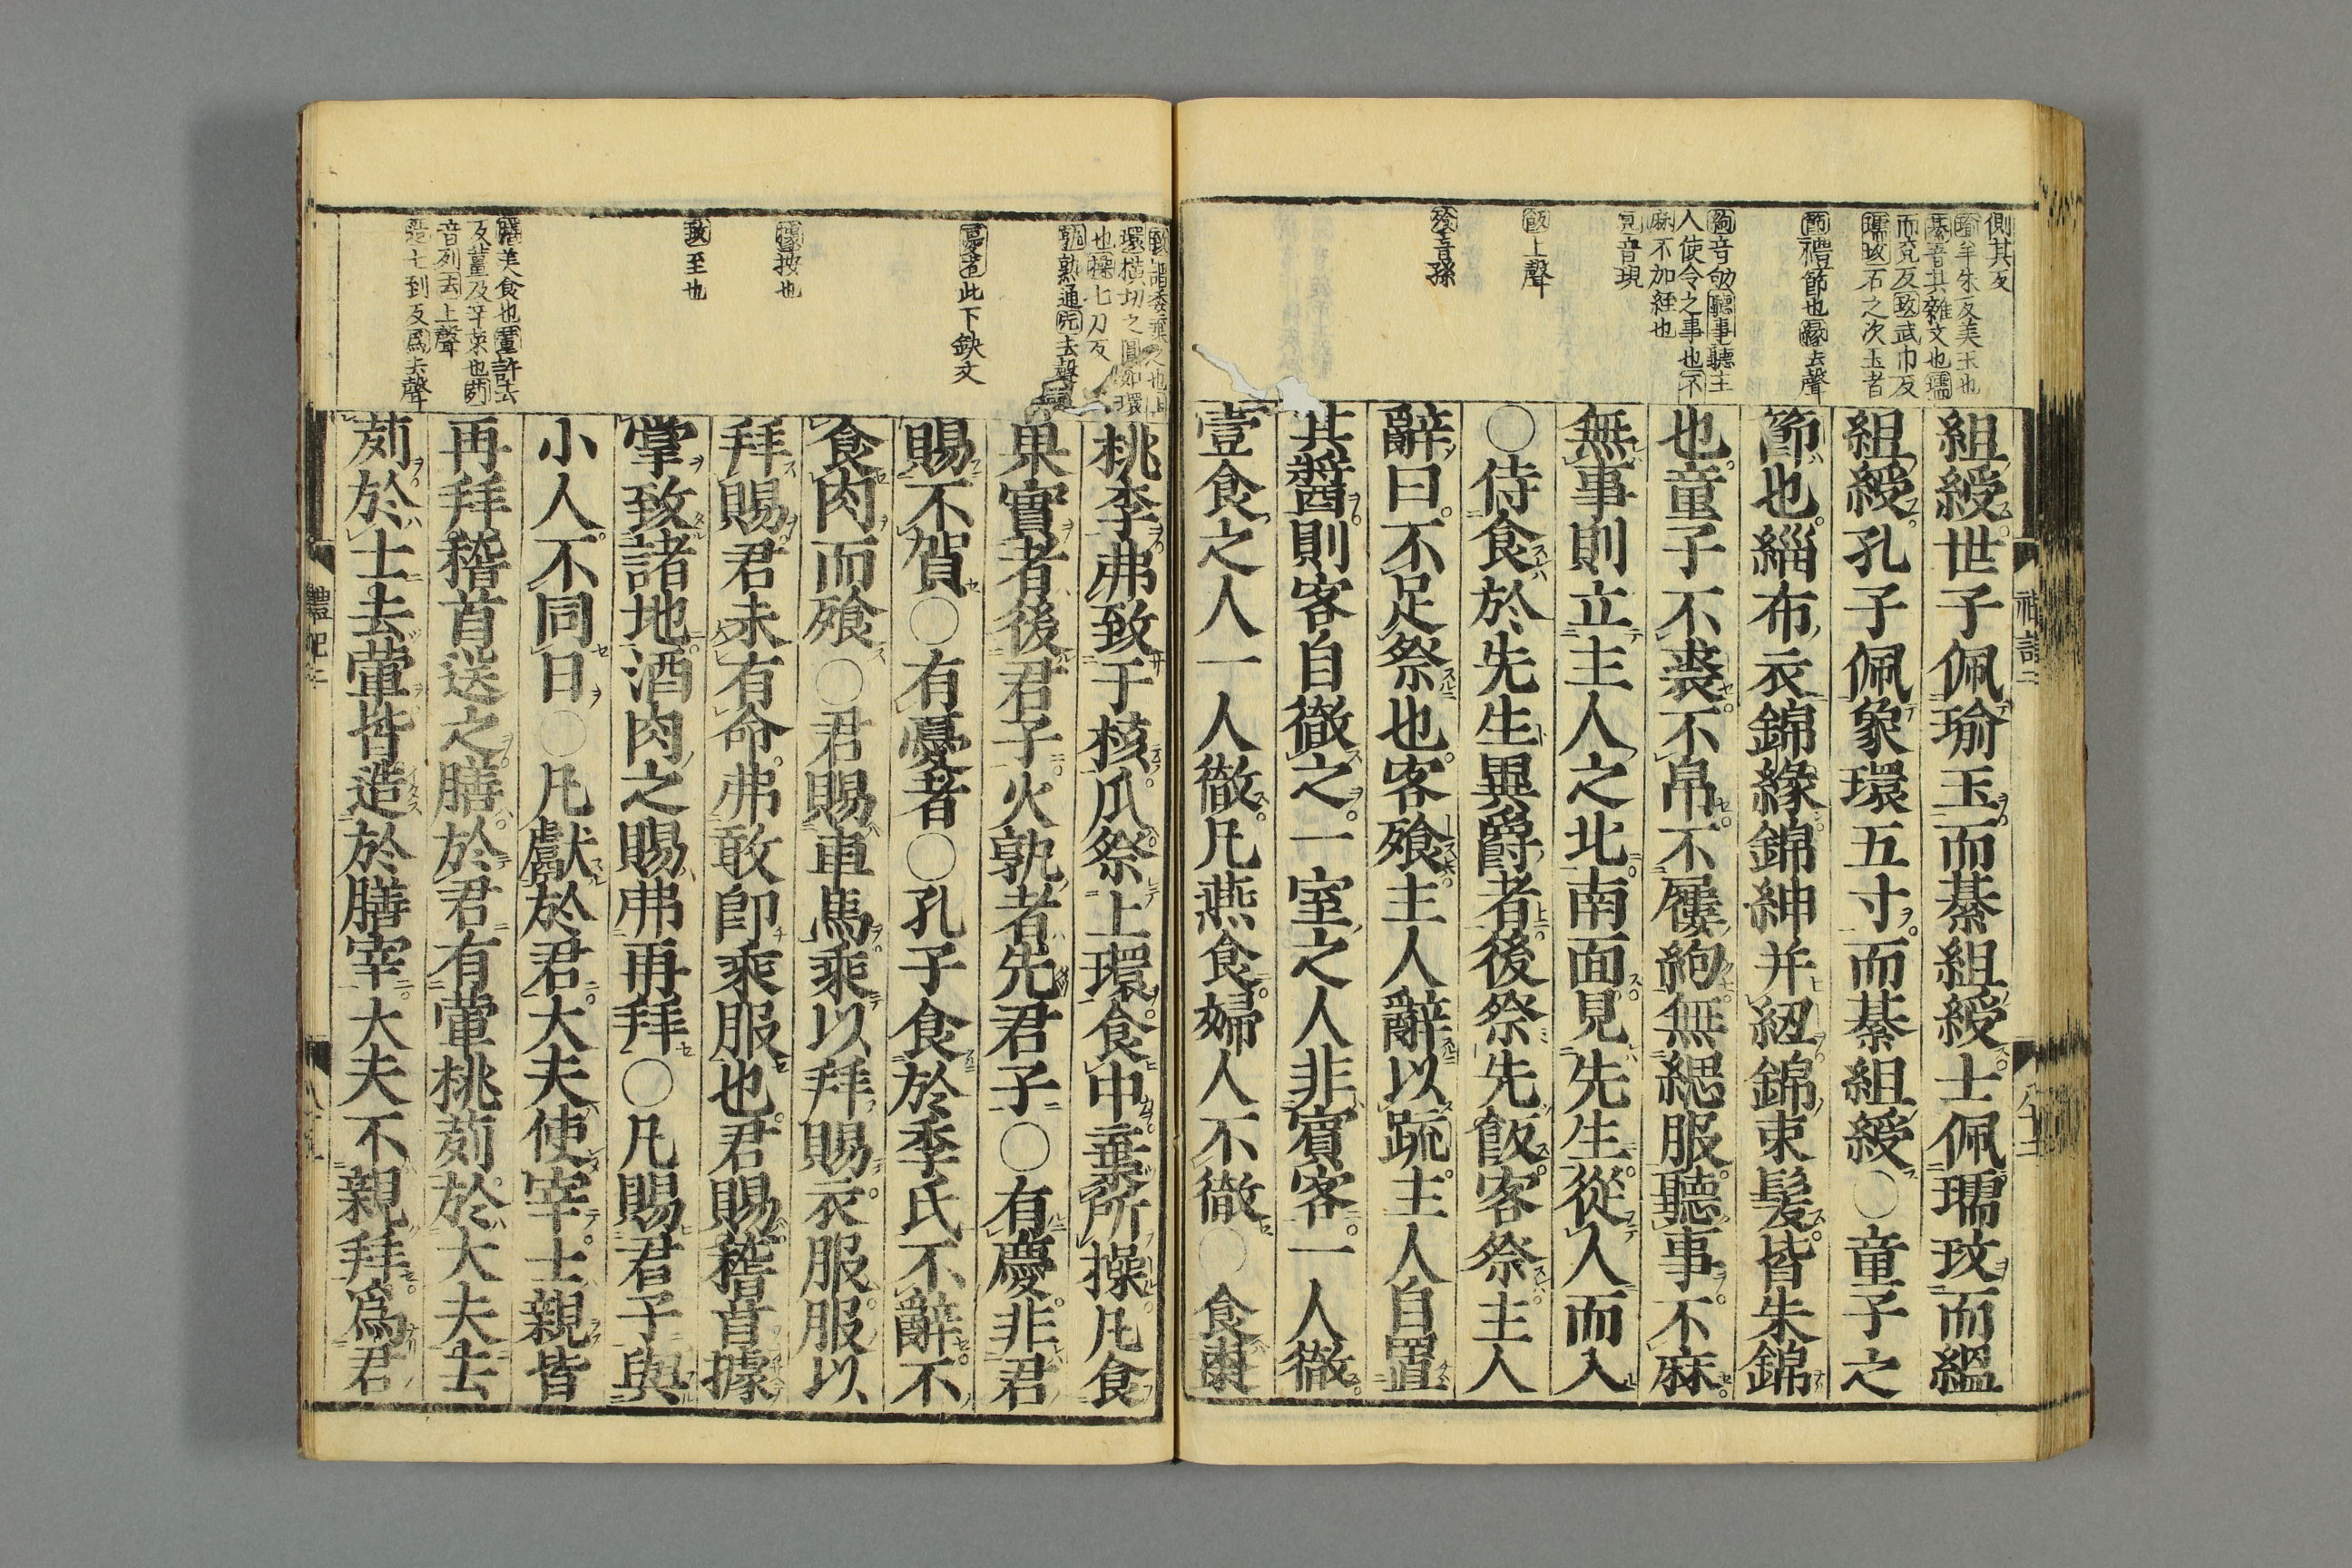 側其反
瑜羊朱反美玉也
綦音其雜文也瓀
而兗反玟武巾反
瓀玟石之次玉者
節禮節也緣去聲
絢音劬聽事聽主
人使令之事也不
麻不加絰也
見音現
飯上聲
飱音孫
組綬世子佩瑜玉而綦組綬士佩瓀玟而縕
組綬孔子佩象環五寸而綦組綬○童子之
節也緇布衣錦緣錦紳并紐錦束髮皆朱錦
也童子不裘不帛不屨絢無緦服聽事不麻
無事則立主人之北南面見先生從人而入
○侍食於先生異爵者後祭先飯客祭主人
辭曰不足祭也客飱主人辭以疏主人自置
其醬則客自徹之一室之人非賓客一人徹
壹食之人一人徹凡燕食婦人不徹○食棗
環橫切之圓如環
也操七刀反
孰熟通先去聲
憂者此下缺文
據按也
致至也
膳美食也葷許云
反薑及辛菜也茢
音列去上聲
造七到反爲去聲
桃李弗致于核瓜祭上環食中棄所操凡食
果實者後君子火孰者先君子○有慶非君
賜不賀○有憂者○孔子食於季氏不辭不
食肉而飱○君賜車馬乘以拜賜衣服服以
拜賜君未有命弗敢卽乘服也君賜稽首據
掌致諸地酒肉之賜弗再拜○凡賜君子與
小人不同日○凡獻於君大夫使宰士親皆
再拜稽首送之膳於君有葷桃茢於大夫去
茢於士去葷皆造於膳宰大夫不親拜爲君
禮記二